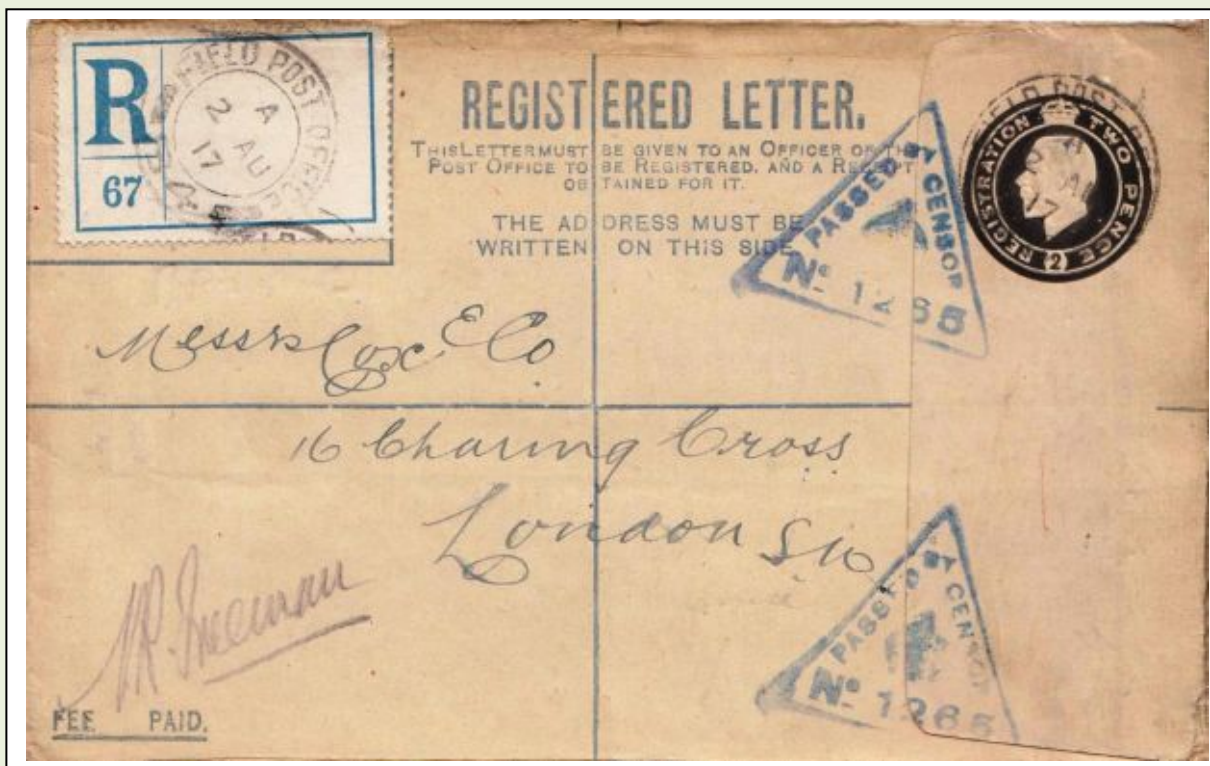 R
67
FIELD POST OFFICE
A
2 AU
17
REGISTERED LETTER.
THIS LETTER MUST BE GIVEN TO AN OFFICER OF THE
POST OFFICE TO BE REGISTERED, AND A RECEIPT
OBTAINED FOR IT.
THE ADDRESS MUST BE
WRITTEN ON THIS SIDE
REGISTRATION TWO PENCE (2)
FIELD POST
PASSED BY CENSOR
No 1265
Messrs Cox & Co
16 Charing Cross
London SW
PASSED BY CENSOR
No 1265
Freeman
FEE PAID.